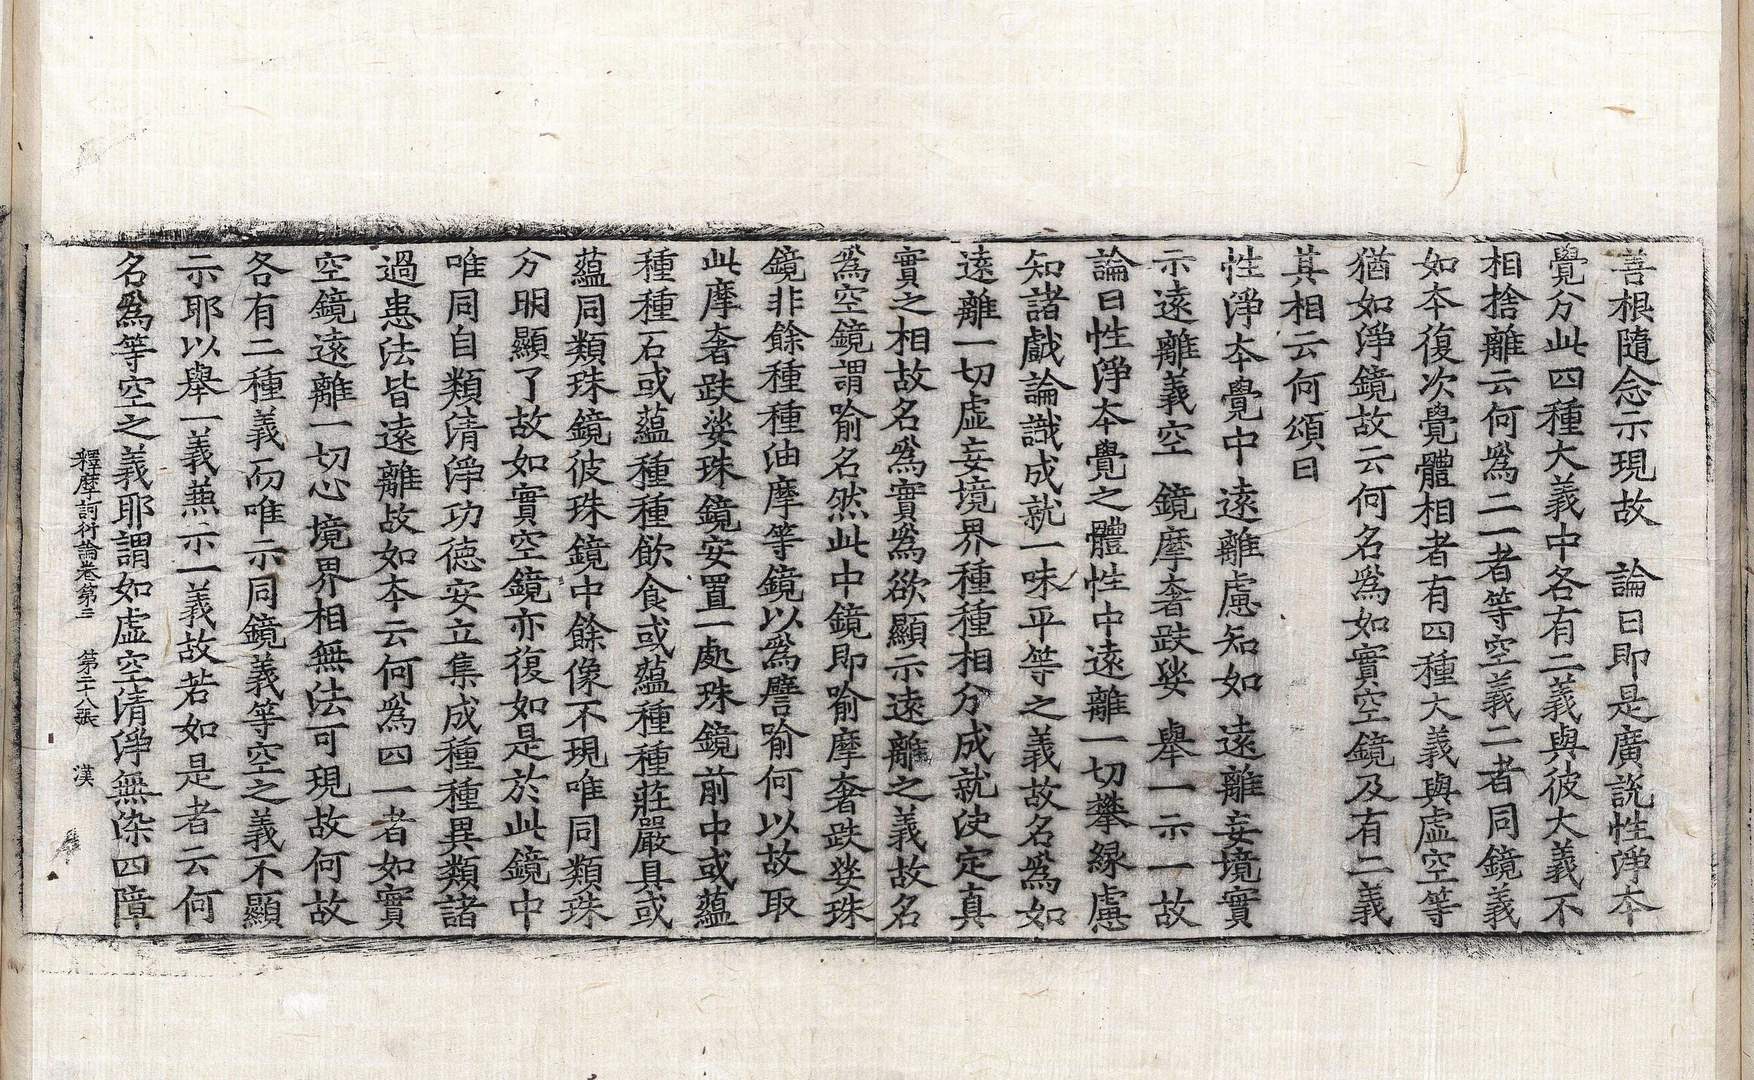 善根隨念示現故　論曰即是廣說性淨本
覺分此四種大義中各有二義與彼大義不
相捨離云何為二一者等空義二者同鏡義
如本復次覺體相者有四種大義與虛空等
猶如淨鏡故云何名為如實空鏡及有二義
其相云何頌曰
性淨本覺中　遠離慮知如　遠離妄境實
示遠離義空　鏡摩奢趺娑　舉一示一故
論曰性淨本覺之體性中遠離一切攀緣慮
知諸戲論識成就一味平等之義故名為如
遠離一切虛妄境界種種相分成就決定真
實之相故名為實為欲顯示遠離之義故名
為空鏡謂喻名然此中鏡即喻摩奢趺娑珠
鏡非餘種種油摩等鏡以為譬喻何以故取
此摩奢趺娑珠鏡安置一處珠鏡前中或蘊
種種石或蘊種種飲食或蘊種種莊嚴具或
蘊同類珠鏡彼珠鏡中餘像不現唯同類珠
分明顯了故如實空鏡亦復如是於此鏡中
唯同自類清淨功德安立集成種種異類諸
過患法皆遠離故如本云何為四一者如實
空鏡遠離一切心境界相無法可現故何故
各有二種義而唯示同鏡義等空之義不顯
示耶以舉一義兼示一義故若如是者云何
名為等空之義耶謂如虛空清淨無染四障
釋摩訶衍論卷第三　第二十八張　漢